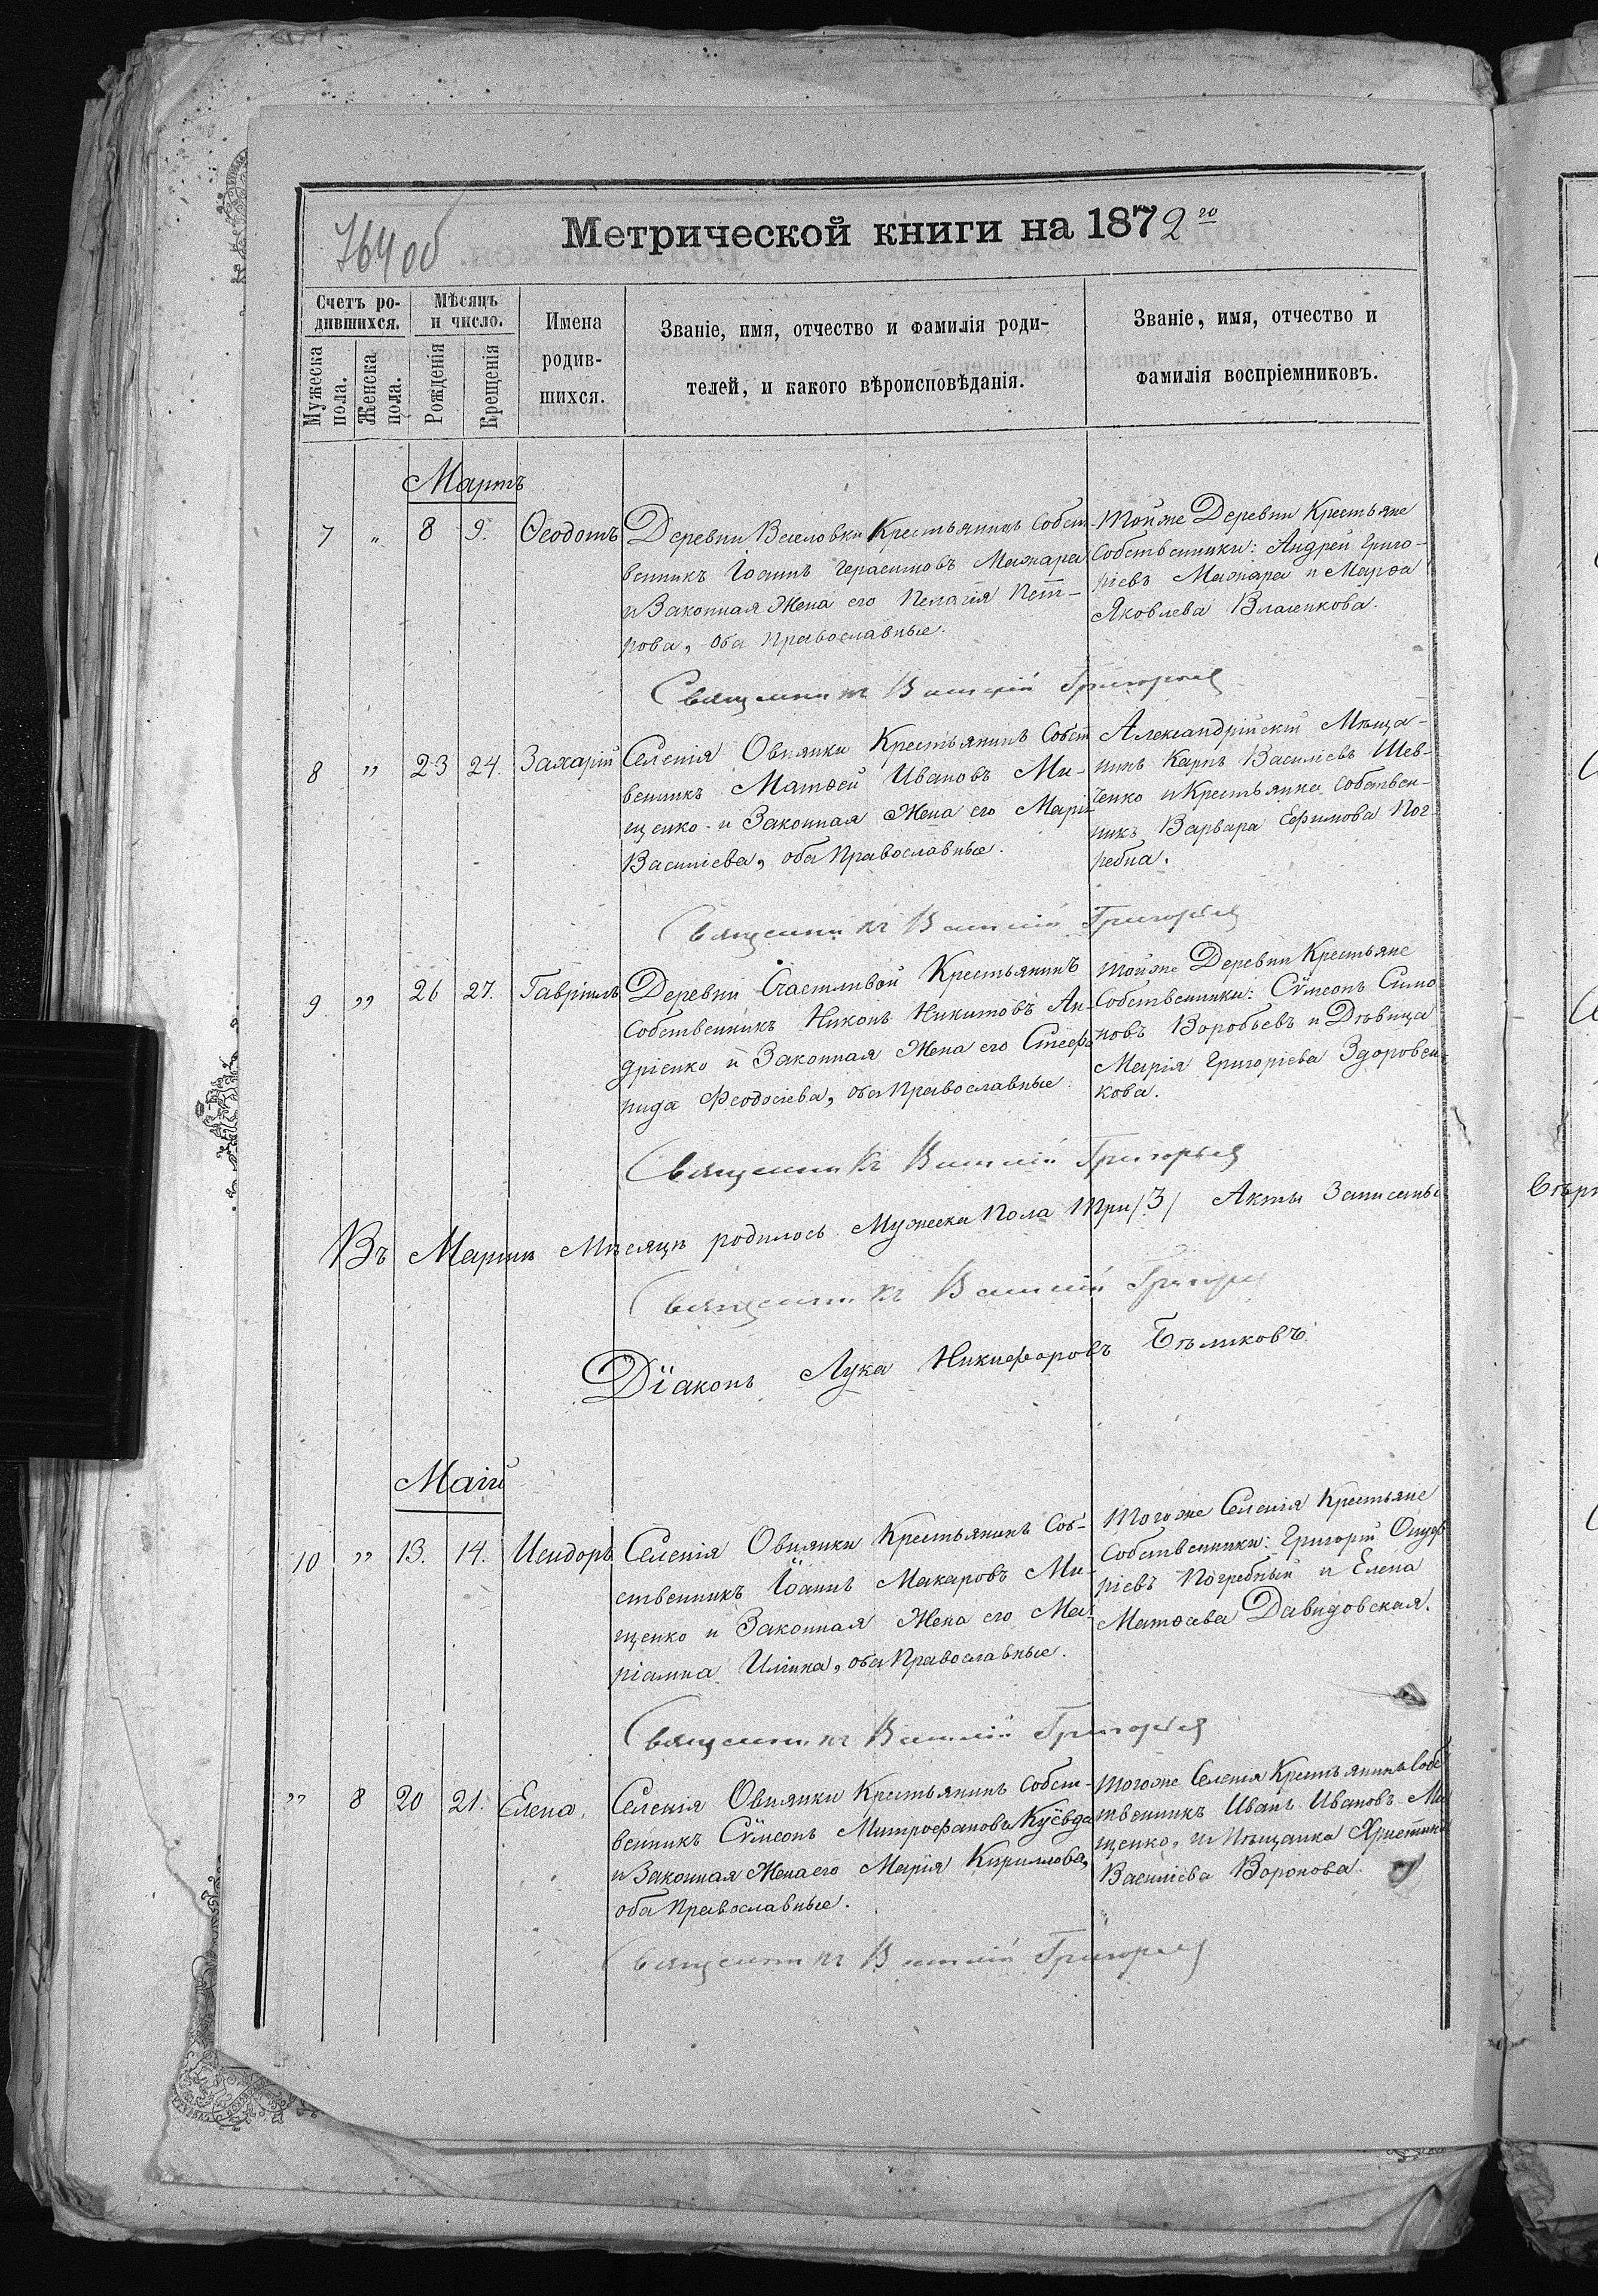 764 об
Метрической книги на 1872го
Счетъ ро-
дившихся.
Мѣсяцъ
и число.
Мужеска
пола.
Женска
пола.
Рожденія
Крещенія
Имена
родив-
шихся.
Званіе, имя, отчество и фамилія роди-
телей, и какого вѣроисповѣданія.
Званіе, имя, отчество и
фамилія воспріемниковъ.
Мартъ
7 " 8 9. Ѳеодотъ
Деревни Веселовки Крестьянинъ Собст-
венникъ Іоаннъ Герасимовъ Мажара
и Законная Жена его Пелагія Пет-
рова, оба Православные.
Тойже Деревни Крестьяне
Собственники: Андрей Григо-
ріевъ Мажара и Марѳа
Яковлева Власенкова.
Священникъ Василій Григорьев
8 " 23 24. Захарій
Селенія Овнянки Крестьянинъ Собст
венникъ Матѳей Ивановъ Ми-
щенко и Законная Жена его Марія
Василіева, оба Православные.
Александрійскій Мѣща-
нинъ Карпъ Василіевъ Шев-
ченко и Крестьянка Собствен-
никъ Варвара Ефимова Пог-
ребна.
Священникъ Василій Григорьев
9 " 26 27. Гавріилъ
Деревни Счастливой Крестьянинъ
Собственникъ Никонъ Никитовъ Ан-
дріенко и Законная Жена его Стефа
нида Феодосіева, оба Православные.
Тойже Деревни Крестьяне
Собственники: Сѵмеонъ Симо
новъ Воробьевъ и Дѣвица
Марія Григоріева Здоровен-
кова.
Священникъ Василій Григорьев
Въ Мартѣ Мѣсяцѣ родилось Мужеска Пола Три /3/ Акты Записаны
Священникъ Василій Григорьев
Діаконъ Лука Никифоровъ Бѣликовъ
Маій
10 " 13. 14. Исидоръ
Селенія Овнянки Крестьянинъ Соб-
ственникъ Іоаннъ Макаровъ Ми-
щенко и Законная Жена его Ма-
ріамна Иліина, оба Православные.
Тогоже Селенія Крестьяне
Собственники: Григорій Онуф
ріевъ Погребный и Елена
Матѳаева Давидовская.
Священникъ Василій Григорьев
" 8 20 21. Елена.
Селенія Овнянки Крестьянинъ Собст-
венникъ Сѵмеонъ Митрофановъ Куевда
и Законная Жена его Марія Кириллова,
оба Православные.
Тогоже Селенія Крестьянинъ Собс
твенникъ Иванъ Ивановъ Ми
щенко, и Мѣщанка Христина
Василіева Воронова.
Священникъ Василій Григорьев